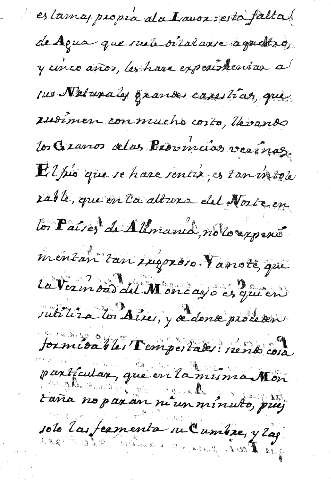 es la mas propia ala Lavor: esta falta
de Agua que suele dilatarse a quatro,
y cinco años, les hace experimentar a
sus Naturales grandes carestias, que
redimen con mucho costo, llevando
los Granos delas Provincias vecinas.
El frio que se hace sentir, es tan intole
rable, que en la altura del Norte en
los Paises de Alemania, no lo experi
mentan tan rigoroso. Ya noté, que
la Vecindad del Moncayo es quien
sutiliza los Aires, y de donde proceden
formidables Tempestades: siendo cosa
particular, que en la misma Mon
taña no paran ni un minuto, pues
solo las fermenta su Cumbre, y las